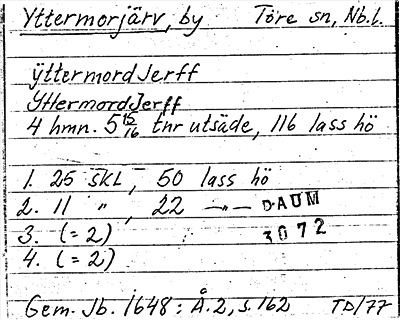 Yttermorjärv, by Töre sn, Nb.l.
ÿttermordJerff
YttermordJerff
4 hmn. 5 15/16 tnr utsäde, 116 lass hö
1. 25 skl, 50 lass hö
2. 11 ", 22 —"— DAUM
3. (=2) 3072
4. (=2)
Gem. Jb. 1648: Å.2, s.162 TD/77